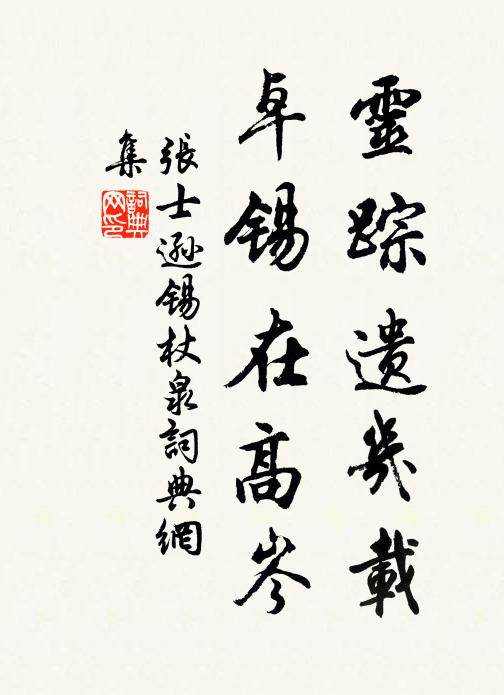 靈踪遺幾載
卓錫在高岑
張士遜錫杖泉詞典網
集
詞典
网印